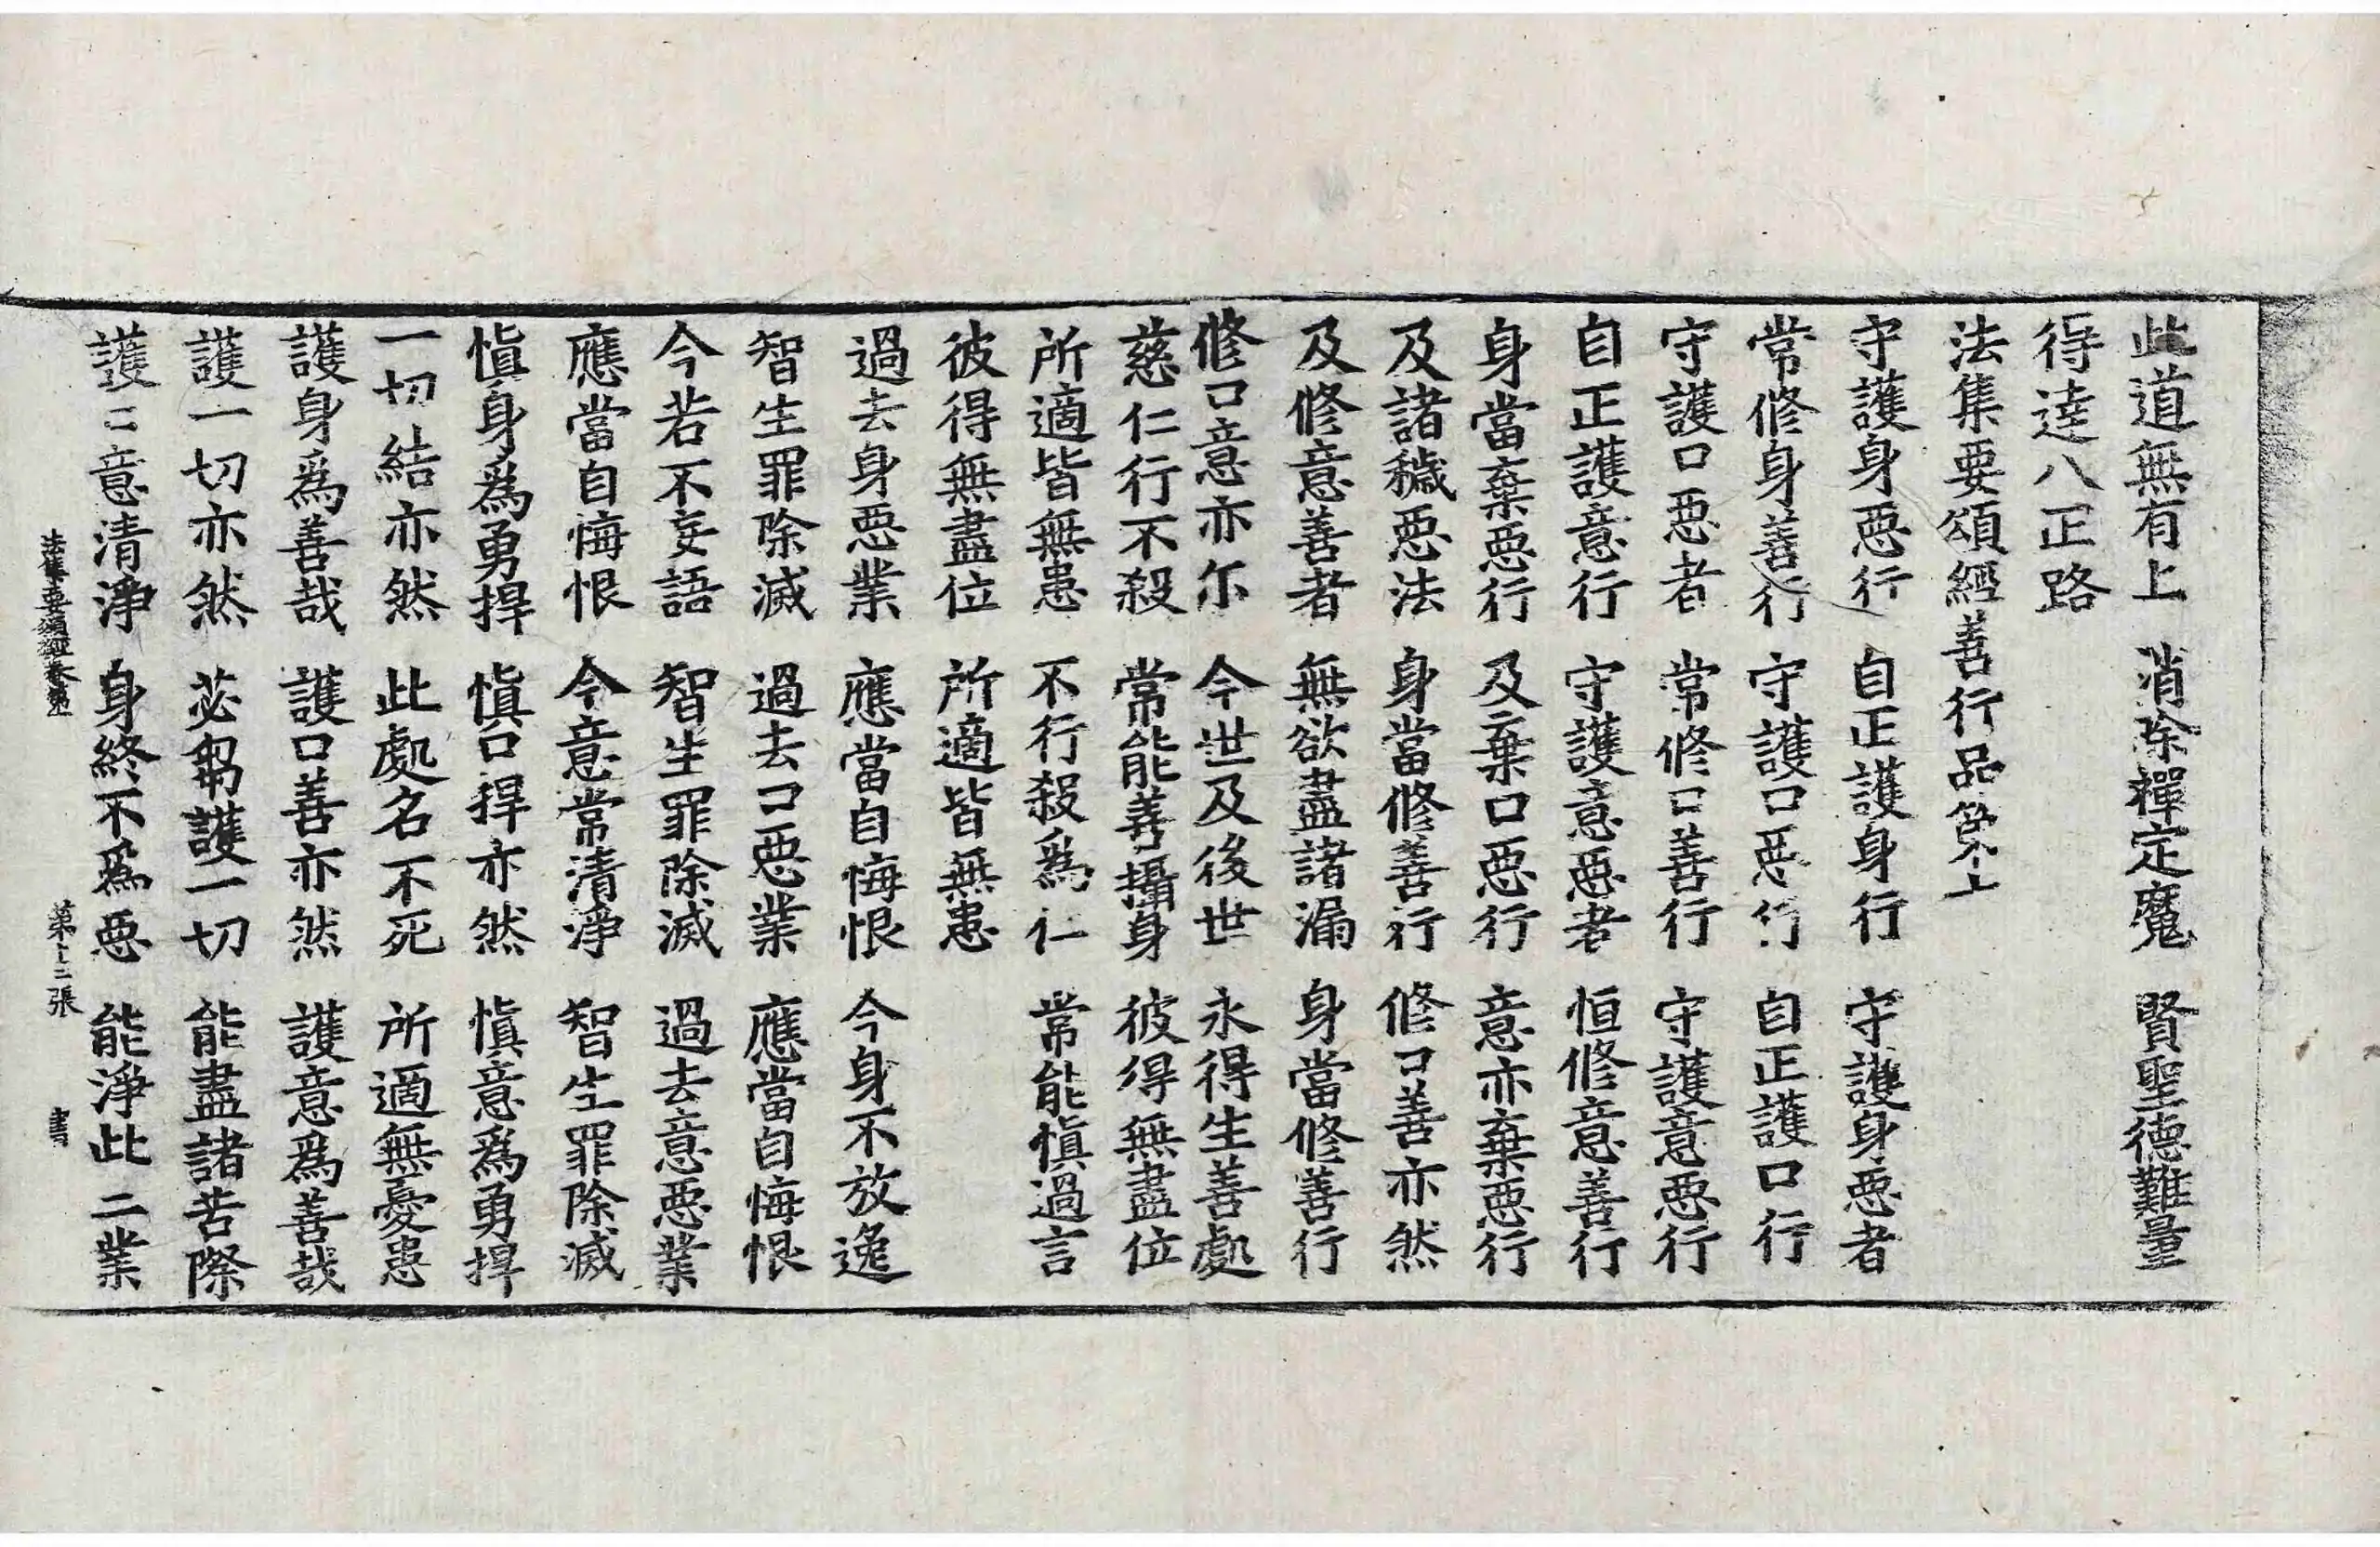 此道無有上　消除禪定魔　賢聖德難量
得逹八正路
法集要頌經善行品第七
守護身惡行　自正護身行　守護身惡者
常修身善行　守護口惡行　自正護口行
守護口惡者　常修口善行　守護意惡行
自正護意行　守護意惡者　恒修意善行
身當棄惡行　及棄口惡行　意亦棄惡行
及諸穢惡法　身當修善行　修口善亦然
及修意善者　無欲盡諸漏　身當修善行
修口意亦尒　今世及後世　永得生善處
慈仁行不殺　常能善攝身　彼得無盡位
所適皆無患　不行殺爲仁　常能愼過言
彼得無盡位　所適皆無患
過去身惡業　應當自悔恨　今身不放逸
智生罪除滅　過去口惡業　應當自悔恨
今若不妄語　智生罪除滅　過去意惡業
應當自悔恨　今意常清淨　智生罪除滅
愼身爲勇捍　愼口捍亦然　愼意爲勇捍
一切結亦然　此處名不死　所適無憂患
護身爲善哉　護口善亦然　護意爲善哉
護一切亦然　苾芻護一切　能盡諸苦際
護口意清淨　身終不爲惡　能淨此二業
法集要頌經卷第　第十二張